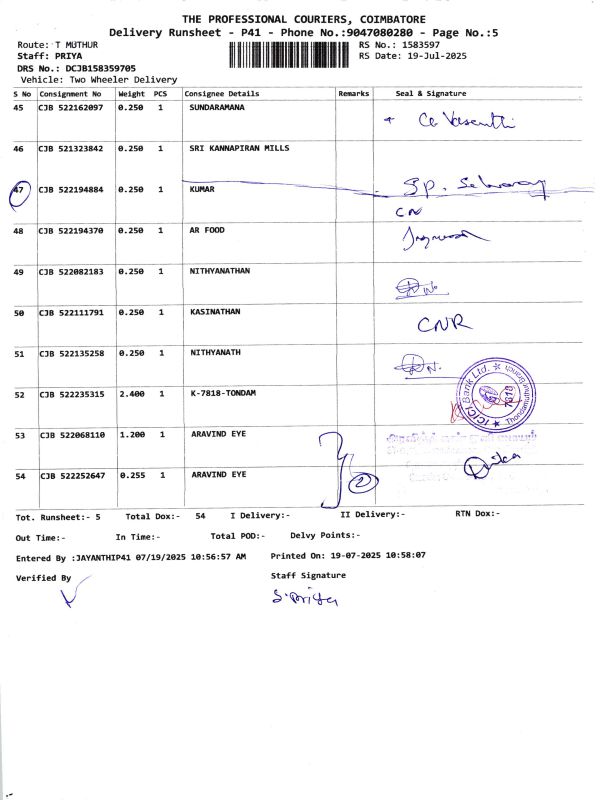 THE PROFESSIONAL COURIERS, COIMBATORE
Delivery Runsheet - P41 - Phone No.:9047080280 - Page No.:5
Route: T MUTHUR RS No.: 1583597
Staff: PRIYA RS Date: 19-Jul-2025
DRS No.: DCJB158359705
Vehicle: Two Wheeler Delivery
S No Consignment No Weight PCS Consignee Details Remarks Seal & Signature
45 CJB 522162097 0.250 1 SUNDARAMANA
46 CJB 521323842 0.250 1 SRI KANNAPIRAN MILLS
47 CJB 522194884 0.250 1 KUMAR
CN
48 CJB 522194370 0.250 1 AR FOOD
49 CJB 522082183 0.250 1 NITHYANATHAN
50 CJB 522111791 0.250 1 KASINATHAN CNR
51 CJB 522135258 0.250 1 NITHYANATH
52 CJB 522235315 2.400 1 K-7818-TONDAM
ICICI Bank Ltd. 7818
53 CJB 522068110 1.200 1 ARAVIND EYE
54 CJB 522252647 0.255 1 ARAVIND EYE 2
Tot. Runsheet:- 5 Total Dox:- 54 I Delivery:- II Delivery:- RTN Dox:-
Out Time:- In Time:- Total POD:- Delvy Points:-
Entered By :JAYANTHIP41 07/19/2025 10:56:57 AM Printed On: 19-07-2025 10:58:07
Verified By Staff Signature
S. Priya